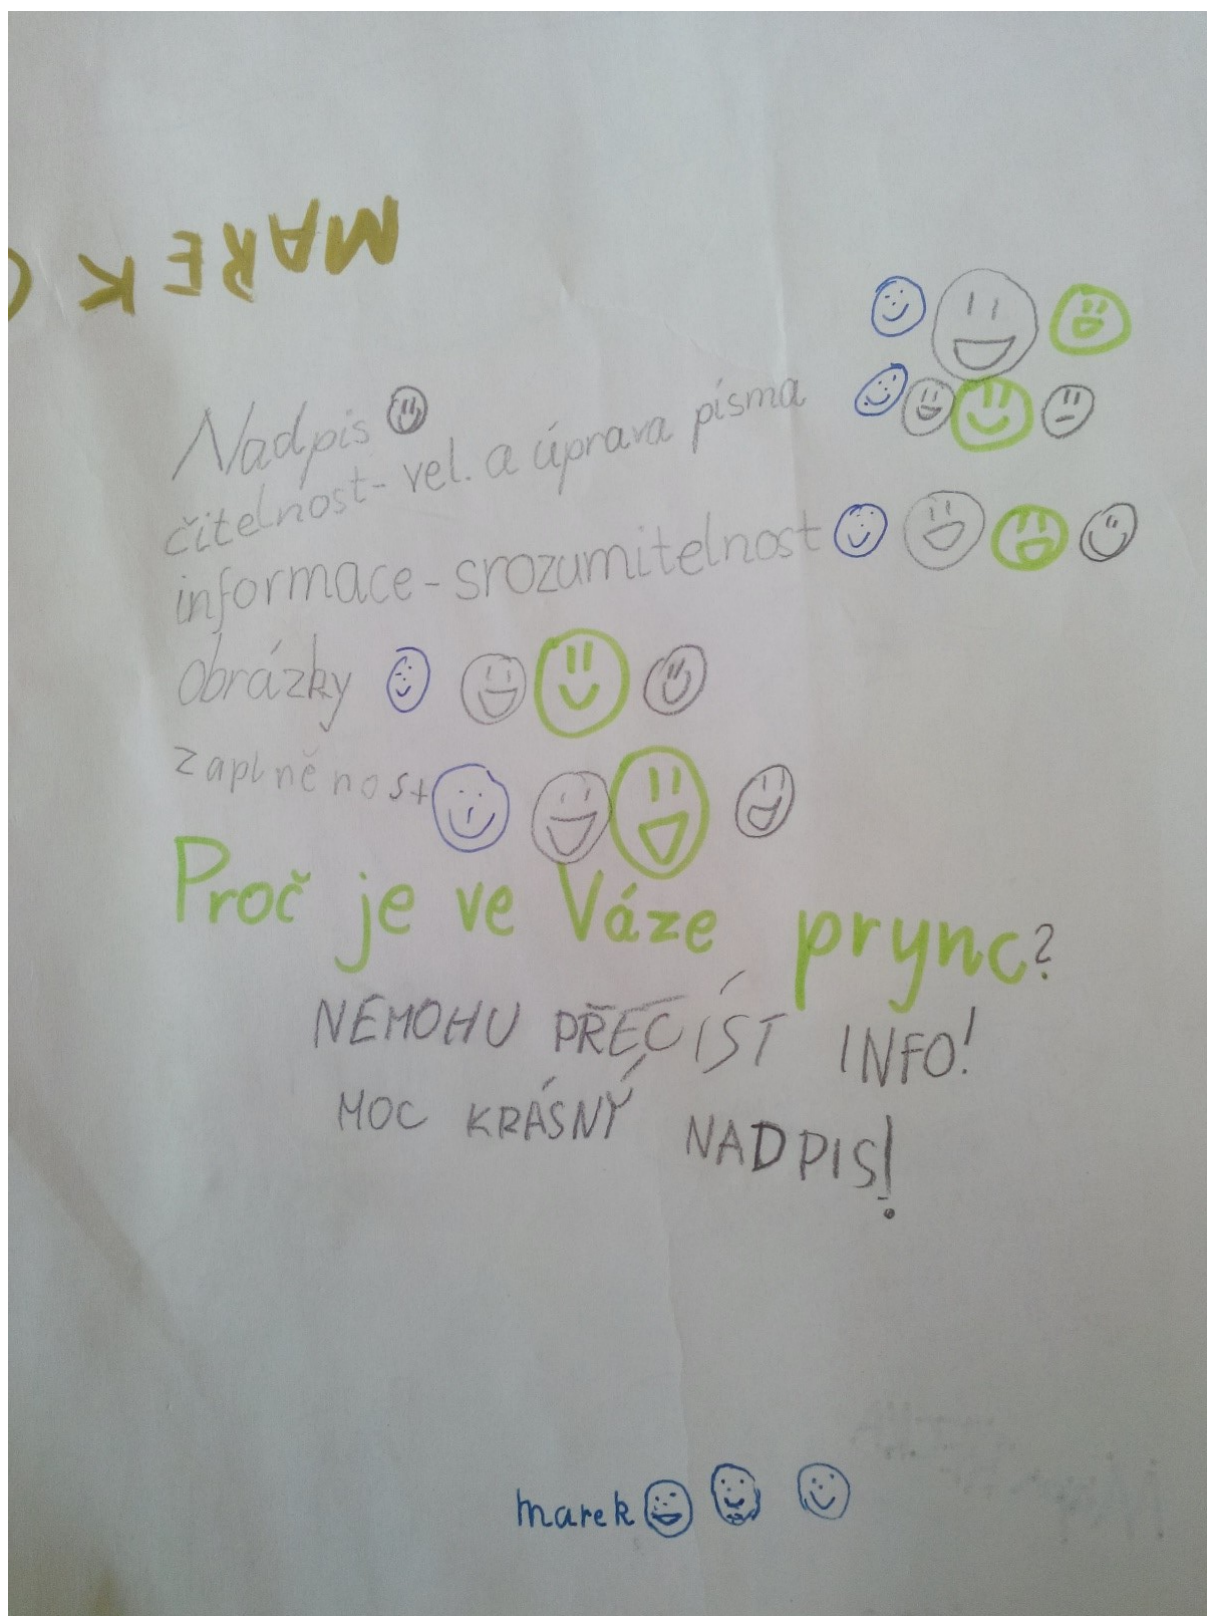 MAREK
Nadpis
čitelnost - vel. a úprava písma
informace - srozumitelnost
obrázky
zaplněnost
Proč je ve Váze prync?
NEMOHU PŘEČÍST INFO!
MOC KRÁSNÝ NADPIS!
marek